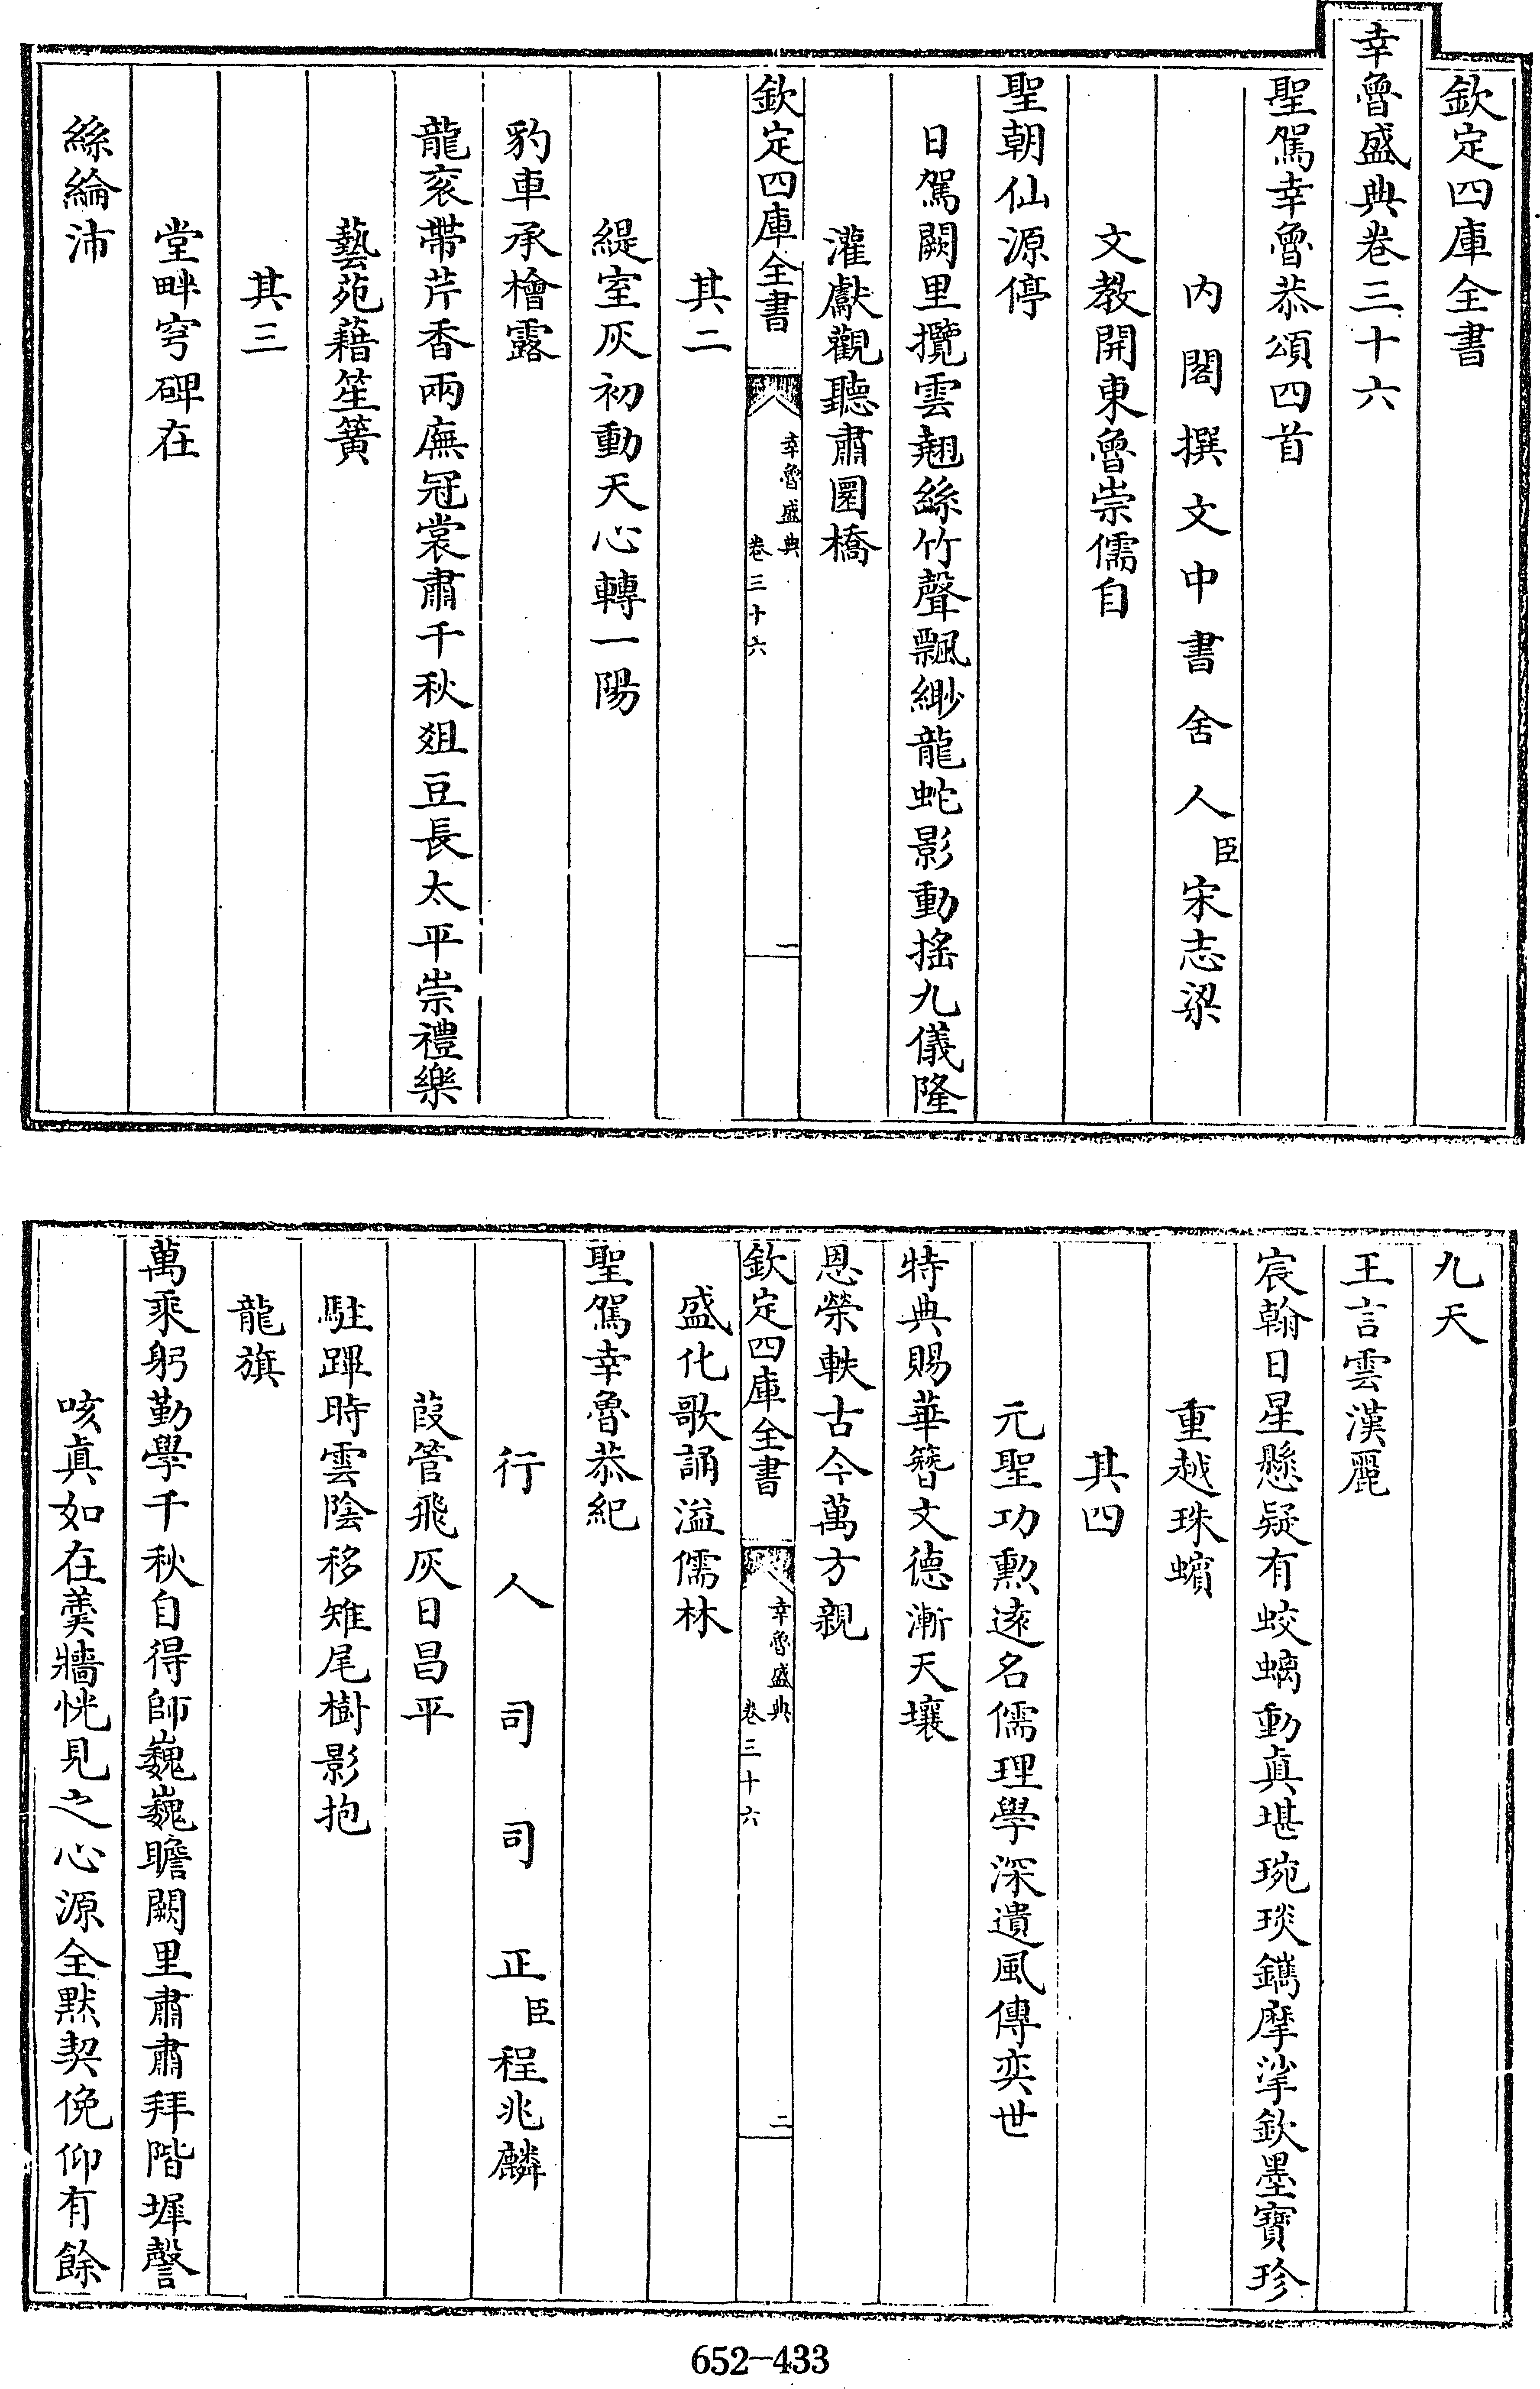 欽定四庫全書
幸魯盛典卷三十六
聖駕幸魯恭頌四首
內閣撰文中書舍人臣宋志梁
文教開東魯崇儒自
聖朝仙源停
日駕闕里攬雲翹絲竹聲飄緲龍蛇影動搖九儀隆
灌獻觀聽肅圜橋
欽定四庫全書
幸魯盛典
卷三十六
一
其二
緹室灰初動天心轉一陽
豹車承檜露
龍衮帶芹香兩廡冠裳肅千秋俎豆長太平崇禮樂
藝苑藉笙簧
其三
堂畔穹碑在
絲綸沛
九天
王言雲漢麗
宸翰日星懸疑有蛟螭動真堪琬琰鐫摩挲欽墨寶珍
重越珠蠙
其四
元聖功勲遠名儒理學深遺風傳奕世
特典賜華簪文德漸天壤
恩榮軼古今萬方親
欽定四庫全書
幸魯盛典
卷三十六
二
盛化歌誦溢儒林
聖駕幸魯恭紀
行人司司正臣程兆麟
葭管飛灰日昌平
駐蹕時雲陰移雉尾樹影抱
龍旗
萬乘躬勤學千秋自得師巍巍瞻闕里肅肅拜階墀謦
咳真如在羹牆恍見之心源全黙契俛仰有餘
652-433